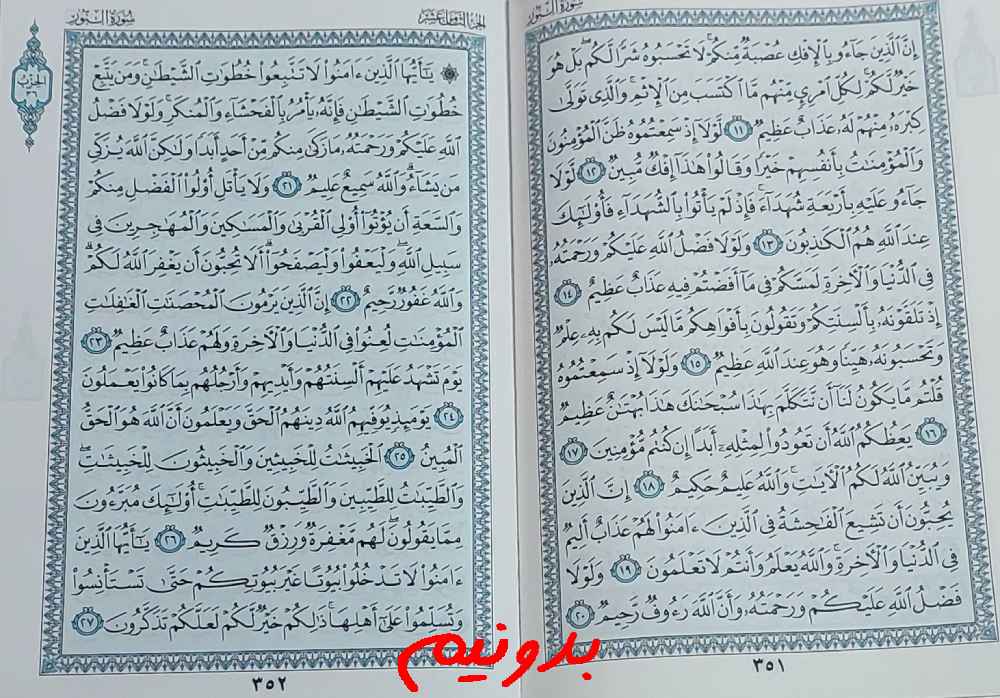 سُورَةُ النُّورِ
إِنَّ الَّذِينَ جَاءُو بِالْإِفْكِ عُصْبَةٌ مِّنكُمْ لَا تَحْسَبُوهُ شَرًّا لَّكُم بَلْ هُوَ
خَيْرٌ لَّكُمْ لِكُلِّ امْرِئٍ مِّنْهُم مَّا اكْتَسَبَ مِنَ الْإِثْمِ وَالَّذِي تَوَلَّىٰ
كِبْرَهُ مِنْهُمْ لَهُ عَذَابٌ عَظِيمٌ ١١ لَّوْلَا إِذْ سَمِعْتُمُوهُ ظَنَّ الْمُؤْمِنُونَ
وَالْمُؤْمِنَاتُ بِأَنفُسِهِمْ خَيْرًا وَقَالُوا هَٰذَا إِفْكٌ مُّبِينٌ ١٢ لَّوْلَا
جَاءُو عَلَيْهِ بِأَرْبَعَةِ شُهَدَاءَ فَإِذْ لَمْ يَأْتُوا بِالشُّهَدَاءِ فَأُولَٰئِكَ
عِندَ اللَّهِ هُمُ الْكَاذِبُونَ ١٣ وَلَوْلَا فَضْلُ اللَّهِ عَلَيْكُمْ وَرَحْمَتُهُ
فِي الدُّنْيَا وَالْآخِرَةِ لَمَسَّكُمْ فِي مَا أَفَضْتُمْ فِيهِ عَذَابٌ عَظِيمٌ ١٤
إِذْ تَلَقَّوْنَهُ بِأَلْسِنَتِكُمْ وَتَقُولُونَ بِأَفْوَاهِكُم مَّا لَيْسَ لَكُم بِهِ عِلْمٌ
وَتَحْسَبُونَهُ هَيِّنًا وَهُوَ عِندَ اللَّهِ عَظِيمٌ ١٥ وَلَوْلَا إِذْ سَمِعْتُمُوهُ
قُلْتُم مَّا يَكُونُ لَنَا أَن نَّتَكَلَّمَ بِهَٰذَا سُبْحَانَكَ هَٰذَا بُهْتَانٌ عَظِيمٌ
١٦ يَعِظُكُمُ اللَّهُ أَن تَعُودُوا لِمِثْلِهِ أَبَدًا إِن كُنتُم مُّؤْمِنِينَ ١٧
وَيُبَيِّنُ اللَّهُ لَكُمُ الْآيَاتِ وَاللَّهُ عَلِيمٌ حَكِيمٌ ١٨ إِنَّ الَّذِينَ
يُحِبُّونَ أَن تَشِيعَ الْفَاحِشَةُ فِي الَّذِينَ ءَامَنُوا لَهُمْ عَذَابٌ أَلِيمٌ
فِي الدُّنْيَا وَالْآخِرَةِ وَاللَّهُ يَعْلَمُ وَأَنتُمْ لَا تَعْلَمُونَ ١٩ وَلَوْلَا
فَضْلُ اللَّهِ عَلَيْكُمْ وَرَحْمَتُهُ وَأَنَّ اللَّهَ رَءُوفٌ رَّحِيمٌ ٢٠
٣٥١
الجزء الثامن عشر
سُورَةُ النُّورِ
الحزب
۞ يَٰأَيُّهَا الَّذِينَ ءَامَنُوا لَا تَتَّبِعُوا خُطُوَٰتِ الشَّيْطَٰنِ وَمَن يَتَّبِعْ
خُطُوَٰتِ الشَّيْطَٰنِ فَإِنَّهُ يَأْمُرُ بِالْفَحْشَاءِ وَالْمُنكَرِ وَلَوْلَا فَضْلُ
اللَّهِ عَلَيْكُمْ وَرَحْمَتُهُ مَا زَكَىٰ مِنكُم مِّنْ أَحَدٍ أَبَدًا وَلَٰكِنَّ اللَّهَ يُزَكِّي
مَن يَشَاءُ وَاللَّهُ سَمِيعٌ عَلِيمٌ ٢١ وَلَا يَأْتَلِ أُولُوا الْفَضْلِ مِنكُمْ
وَالسَّعَةِ أَن يُؤْتُوا أُولِي الْقُرْبَىٰ وَالْمَسَٰكِينَ وَالْمُهَٰجِرِينَ فِي
سَبِيلِ اللَّهِ وَلْيَعْفُوا وَلْيَصْفَحُوا أَلَا تُحِبُّونَ أَن يَغْفِرَ اللَّهُ لَكُمْ
وَاللَّهُ غَفُورٌ رَّحِيمٌ ٢٢ إِنَّ الَّذِينَ يَرْمُونَ الْمُحْصَنَٰتِ الْغَٰفِلَٰتِ
الْمُؤْمِنَٰتِ لُعِنُوا فِي الدُّنْيَا وَالْآخِرَةِ وَلَهُمْ عَذَابٌ عَظِيمٌ ٢٣
يَوْمَ تَشْهَدُ عَلَيْهِمْ أَلْسِنَتُهُمْ وَأَيْدِيهِمْ وَأَرْجُلُهُم بِمَا كَانُوا يَعْمَلُونَ
٢٤ يَوْمَئِذٍ يُوَفِّيهِمُ اللَّهُ دِينَهُمُ الْحَقَّ وَيَعْلَمُونَ أَنَّ اللَّهَ هُوَ الْحَقُّ
الْمُبِينُ ٢٥ الْخَبِيثَٰتُ لِلْخَبِيثِينَ وَالْخَبِيثُونَ لِلْخَبِيثَٰتِ
وَالطَّيِّبَٰتُ لِلطَّيِّبِينَ وَالطَّيِّبُونَ لِلطَّيِّبَٰتِ أُولَٰئِكَ مُبَرَّءُونَ
مِمَّا يَقُولُونَ لَهُم مَّغْفِرَةٌ وَرِزْقٌ كَرِيمٌ ٢٦ يَٰأَيُّهَا الَّذِينَ
ءَامَنُوا لَا تَدْخُلُوا بُيُوتًا غَيْرَ بُيُوتِكُمْ حَتَّىٰ تَسْتَأْنِسُوا
وَتُسَلِّمُوا عَلَىٰ أَهْلِهَا ذَٰلِكُمْ خَيْرٌ لَّكُمْ لَعَلَّكُمْ تَذَكَّرُونَ ٢٧
٣٥٢
بدونیم